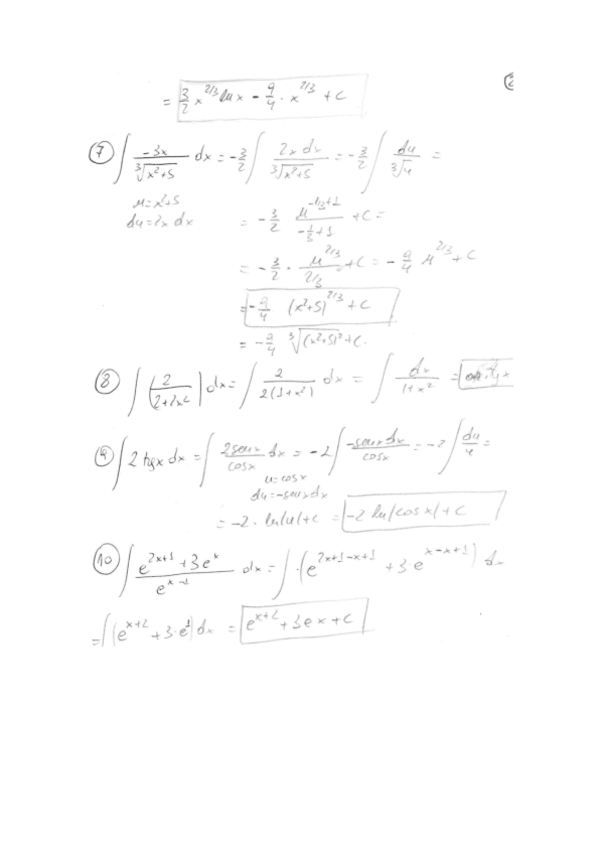 = 3/2 x^{2/3} ln x - 9/4 · x^{2/3} + C
⑦ ∫ -3x/∛(x²+5) dx = -3/2 ∫ 2x dx/∛(x²+5) = -3/2 ∫ du/∛u =
u = x²+5
du = 2x dx
= -3/2 u^{-1/3+1}/(-1/3+1) + C =
= -3/2 · u^{2/3}/(2/3) + C = -9/4 u^{2/3} + C
= -9/4 (x²+5)^{2/3} + C
= -9/4 ∛(x²+5)² + C.
⑧ ∫ (2/(2+2x²)) dx = ∫ 2/(2(1+x²)) dx = ∫ dx/(1+x²) =
⑨ ∫ 2 tgx dx = ∫ 2senx/cosx dx = -2 ∫ -senx dx/cosx = -2 ∫ du/u =
u = cosx
du = -senx dx
= -2 · ln|u| + C = -2 ln|cos x| + C
⑩ ∫ (e^{2x+1} + 3e^x)/e^{x-1} dx = ∫ (e^{2x+1-x+1} + 3e^{x-x+1}) dx
= ∫ (e^{x+2} + 3·e^1) dx = e^{x+2} + 3ex + C